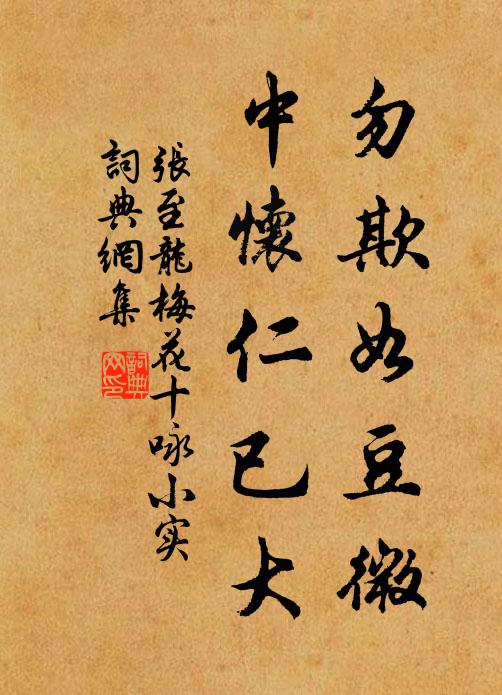 勿欺如豆微
中懷仁已大
張至龍梅花十咏小实
詞典網集
詞典网印